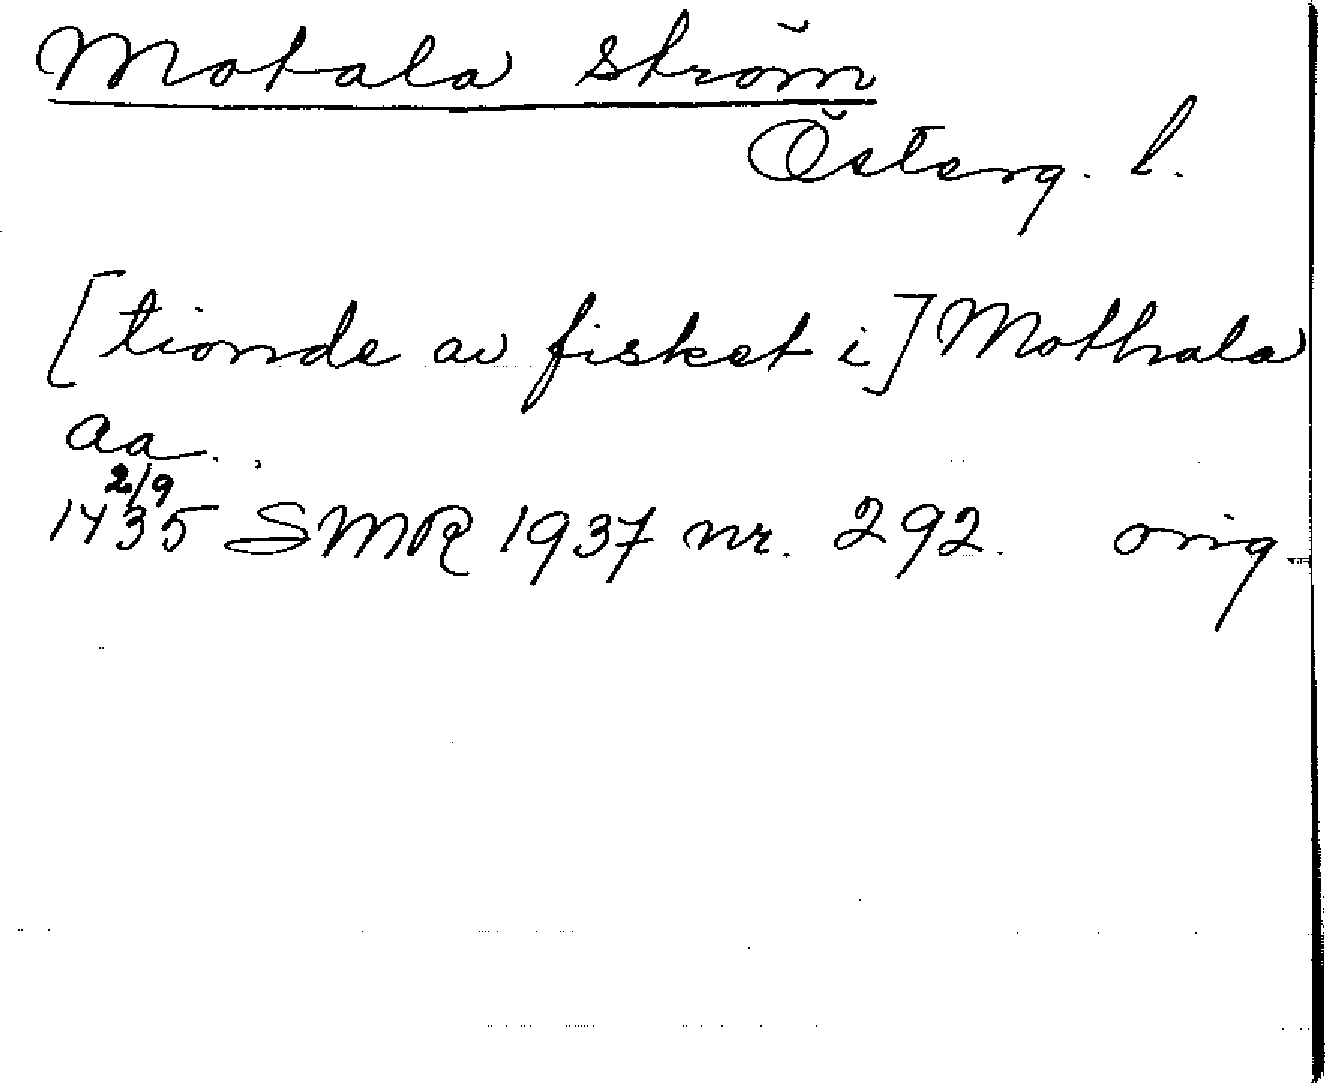 Motala ström
Österg. l.
[tionde av fisket i] Mothala
aa.
2/9
1435 SMR 1937 nr. 292. orig.